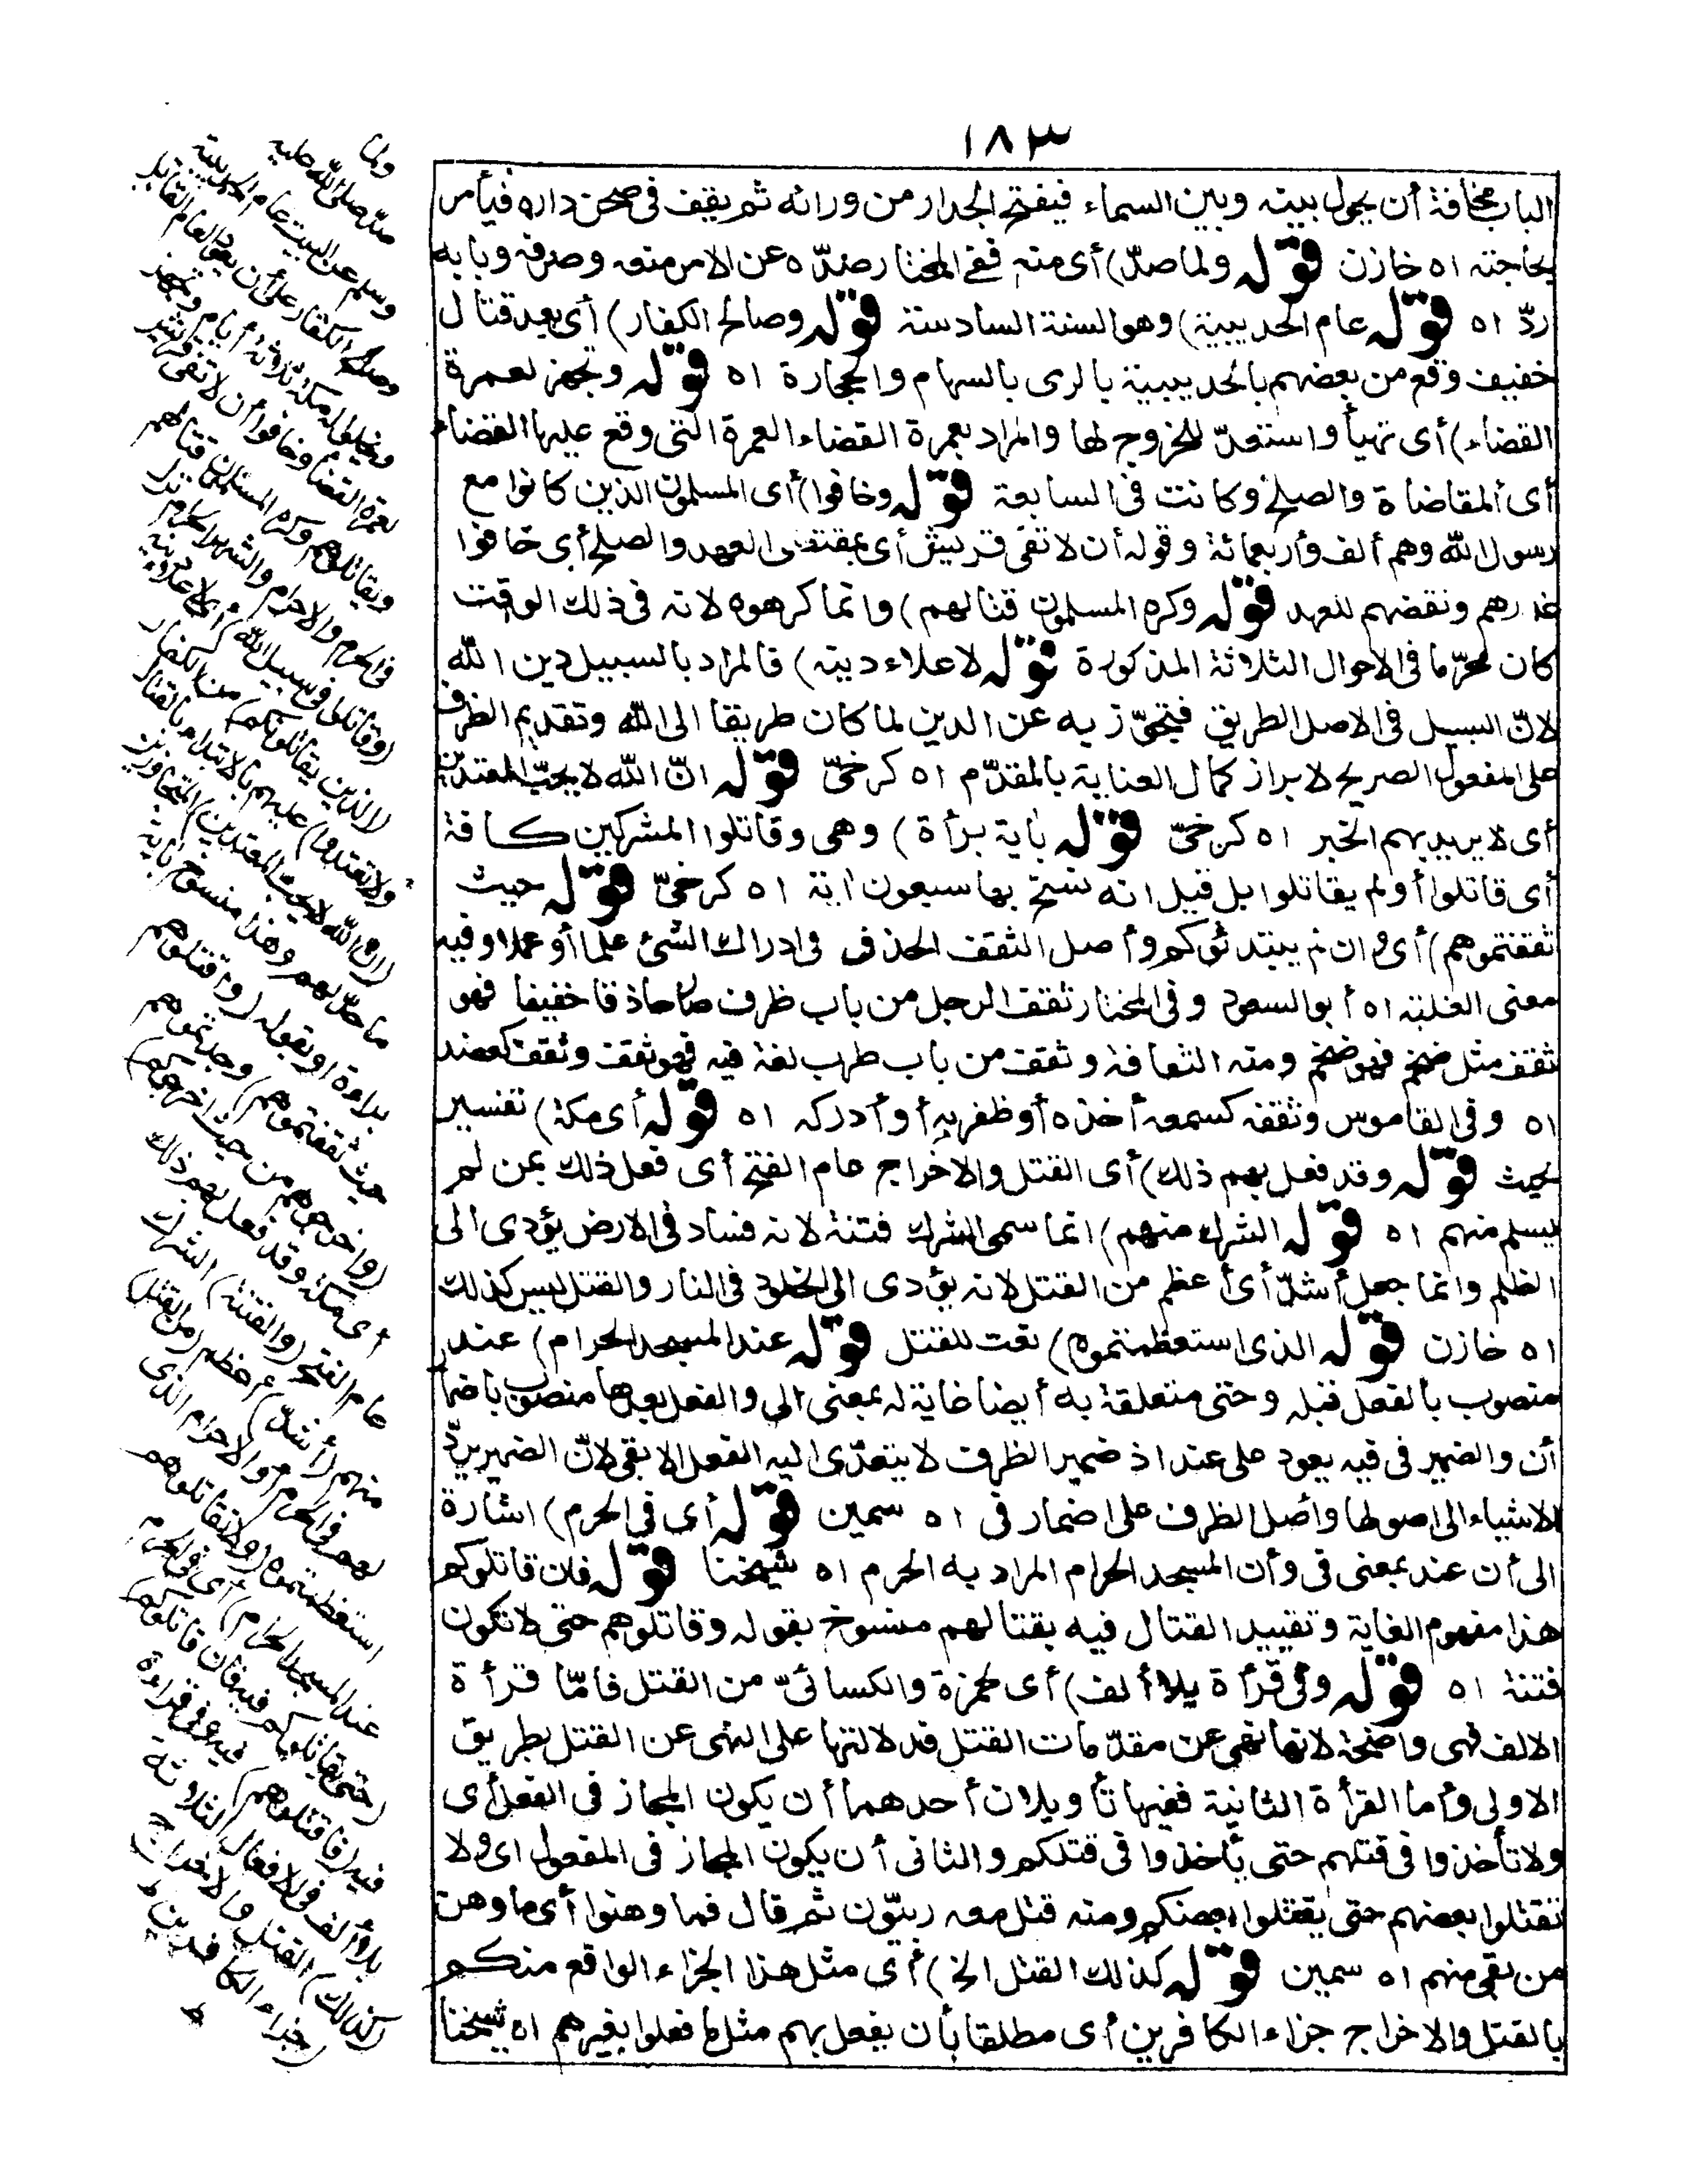 ١٨٣
الباب مخافة أن يحول بيته وبين السماء فيفتح الجدار من ورائه ثم يقف في صحن داره فيأمر
بحاجته اه خازن قوله ولما صدّ) أى منع ففى المختار صدّه عن الامر منعه وصرفه وبابه
ردّ اه قوله عام الحديبية) وهو السنة السادسة قوله وصالح الكفار) أى بعد قتال
خفيف وقع من بعضهم بالحديبية بالرمى بالسهام والحجارة اه قوله وتجهز لعمرة
القضاء) أى تهيأ واستعدّ للخروج لها والمراد بعمرة القضاء العمرة التى وقع عليها القضاء
أى المقاضاة والصلح وكانت فى السابعة قوله وخافوا) أى المسلمون الذين كانوا مع
رسول الله وهم ألف وأربعمائة وقوله أن لا تفى قريش أى بمقتضى العهد والصلح أى خافوا
غدرهم ونقضهم للعهد قوله وكره المسلمون قتالهم) وانما كرهوه لانه فى ذلك الوقت
كان محرّما فى الاحوال الثلاثة المذكورة قوله لاعلاء دينه) فالمراد بالسبيل دين الله
لانّ السبيل فى الاصل الطريق فتجوّز به عن الدين لما كان طريقا الى الله وتقديم الظرف
على المفعول الصريح لابراز كمال العناية بالمقدّم اه كرخىّ قوله انّ الله لا يحبّ المعتدين
أى لا يريد بهم الخير اه كرخىّ قوله بآية برأة) وهى وقاتلوا المشركين كافة
أى قاتلوا أو لم يقاتلوا بل قيل انه نسخ بها سبعون آية اه كرخىّ قوله حيث
ثقفتموهم) أى وان لم يبتدئوكم وأصل الثقف الحذق فى ادراك الشئ علما أو عملا وفيه
معنى الغلبة اه أبو السعود وفى المختار ثقف الرجل من باب ظرف صار حاذقا خفيفا فهو
ثقف مثل ضخم فهو ضخم ومنه الثقافة وثقف من باب طرب لغة فيه فهو ثقف وثقف كعضد
اه وفى القاموس وثقفه كسمعه أخذه أو ظفر به أو أدركه اه قوله أى مكة) تفسير
لحيث قوله وقد فعل بهم ذلك) أى القتل والاخراج عام الفتح أى فعل ذلك بمن لم
يسلم منهم اه قوله الشرك منهم) انما سمى الشرك فتنة لانه فساد فى الارض يؤدى الى
الظلم وانما جعل أشدّ أى أعظم من القتل لانه يؤدى الى الخلود فى النار والقتل ليس كذلك
اه خازن قوله الذى استعظمتموه) نعت للقتل قوله عند المسجد الحرام) عند
منصوب بالفعل قبله وحتى متعلقة به أيضا غاية له بمعنى الى والفعل بعدها منصوب باضمار
أن والضمير فى فيه يعود على عند اذ ضمير الظرف لا يتعدّى اليه الفعل الا بفى لانّ الضمير يردّ
الاشياء الى اصولها وأصل الظرف على اضمار فى اه سمين قوله أى في الحرم) اشارة
الى أن عند بمعنى فى وأن المسجد الحرام المراد به الحرم اه شيخنا قوله فان قاتلوكم
هذا مفهوم الغاية وتقييد القتال فيه بقتالهم منسوخ بقوله وقاتلوهم حتى لا تكون
فتنة اه قوله وفى قرأة بلا ألف) أى لحمزة والكسائىّ من القتل فامّا قرأة
الالف فهى واضحة لانها نهى عن مقدّمات القتل فدلالتها على النهى عن القتل بطريق
الاولى وأما القرأة الثانية ففيها تأويلان أحدهما أن يكون المجاز فى الفعل أى
ولا تأخذوا فى قتلهم حتى يأخذوا فى قتلكم والثانى أن يكون المجاز فى المفعول اى ولا
تقتلوا بعضهم حتى يقتلوا بعضكم ومنه قتل معه ربيّون ثم قال فما وهنوا أى ما وهن
من بقى منهم اه سمين قوله كذلك القتل الخ) أى مثل هذا الجزاء الواقع منكم
بالقتل والاخراج جزاء الكافرين أى مطلقا بأن يفعل بهم مثل ما فعلوا بغيرهم اه شيخنا
ولما
صدّ صلى الله عليه
وسلم عن البيت عام الحديبية
وصالح الكفار على أن يعود العام القابل
ويخلوا له مكة ثلاثة أيام وتجهز
لعمرة القضاء وخافوا أن لا تفى قريش
ويقاتلوهم وكره المسلمون قتالهم
فى الحرم والاحرام والشهر الحرام نزل
(وقاتلوا فى سبيل الله) أى لاعلاء دينه
(الذين يقاتلونكم) من الكفار
(ولا تعتدوا) عليهم بالابتداء بالقتال
(ان الله لا يحب المعتدين) المتجاوزين
ما حدّ لهم وهذا منسوخ بآية
براءة أو بقوله (واقتلوهم
حيث ثقفتموهم) وجدتموهم
(وأخرجوهم من حيث أخرجوكم)
أى مكة وقد فعل بهم ذلك
عام الفتح (والفتنة) الشرك
منهم (أشدّ) أعظم (من القتل)
لهم فى الحرم أو الاحرام الذى
استعظمتموه (ولا تقاتلوهم
عند المسجد الحرام) أى فى الحرم
(حتى يقاتلوكم فيه فان قاتلوكم)
فيه (فاقتلوهم) فيه وفى قراءة
بلا ألف فى الافعال الثلاثة
(كذلك) القتل والاخراج
(جزاء الكافرين)